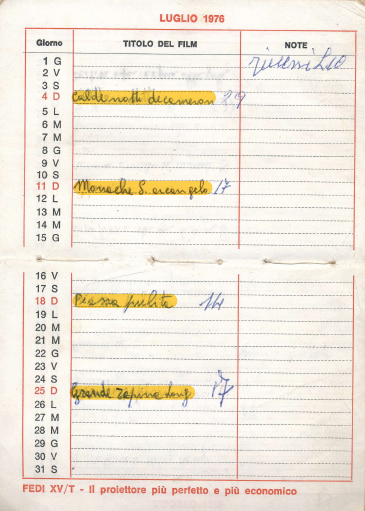 LUGLIO 1976
Giorno TITOLO DEL FILM NOTE
1 G
2 V
3 S
4 D Calde notti decameron 29
5 L
6 M
7 M
8 G
9 V
10 S
11 D Monache S. arcangelo 17
12 L
13 M
14 M
15 G
16 V
17 S
18 D Piazza pulita 14
19 L
20 M
21 M
22 G
23 V
24 S
25 D Grande rapina Long 17
26 L
27 M
28 M
29 G
30 V
31 S
FEDI XV/T - Il proiettore più perfetto e più economico